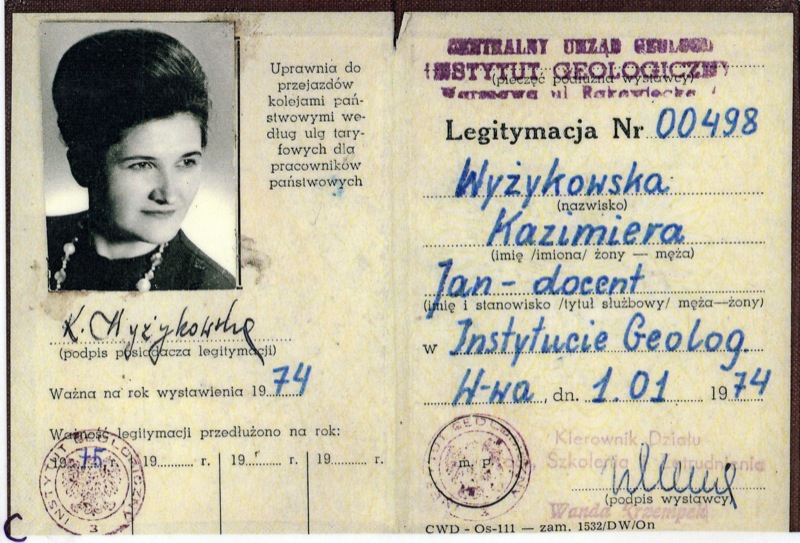 Uprawnia do
przejazdów
kolejami pań-
stwowymi we-
dług ulg tary-
fowych dla
pracowników
państwowych
K. Wyżykowska
(podpis posiadacza legitymacji)
Ważna na rok wystawienia 1974
Ważność legitymacji przedłużono na rok:
1975 r. 19 r. 19 r. 19 r.
INSTYTUT GEOLOGICZNY
3
C
CENTRALNY URZĄD GEOLOGII
INSTYTUT GEOLOGICZNY
(pieczęć podłużna wystawcy)
Warszawa ul Rakowiecka
Legitymacja Nr 00498
Wyżykowska
(nazwisko)
Kazimiera
(imię /imiona/ żony — męża)
Jan - docent
(imię i stanowisko /tytuł służbowy/ męża—żony)
w Instytucie Geolog.
W-wa, dn. 1.01 1974
INSTYTUT GEOLOGICZNY
m. p.
3
Kierownik Działu
Szkolenia i Zatrudnienia
(podpis wystawcy)
Wanda Krzempek
CWD - Os-111 — zam. 1532/DW/On